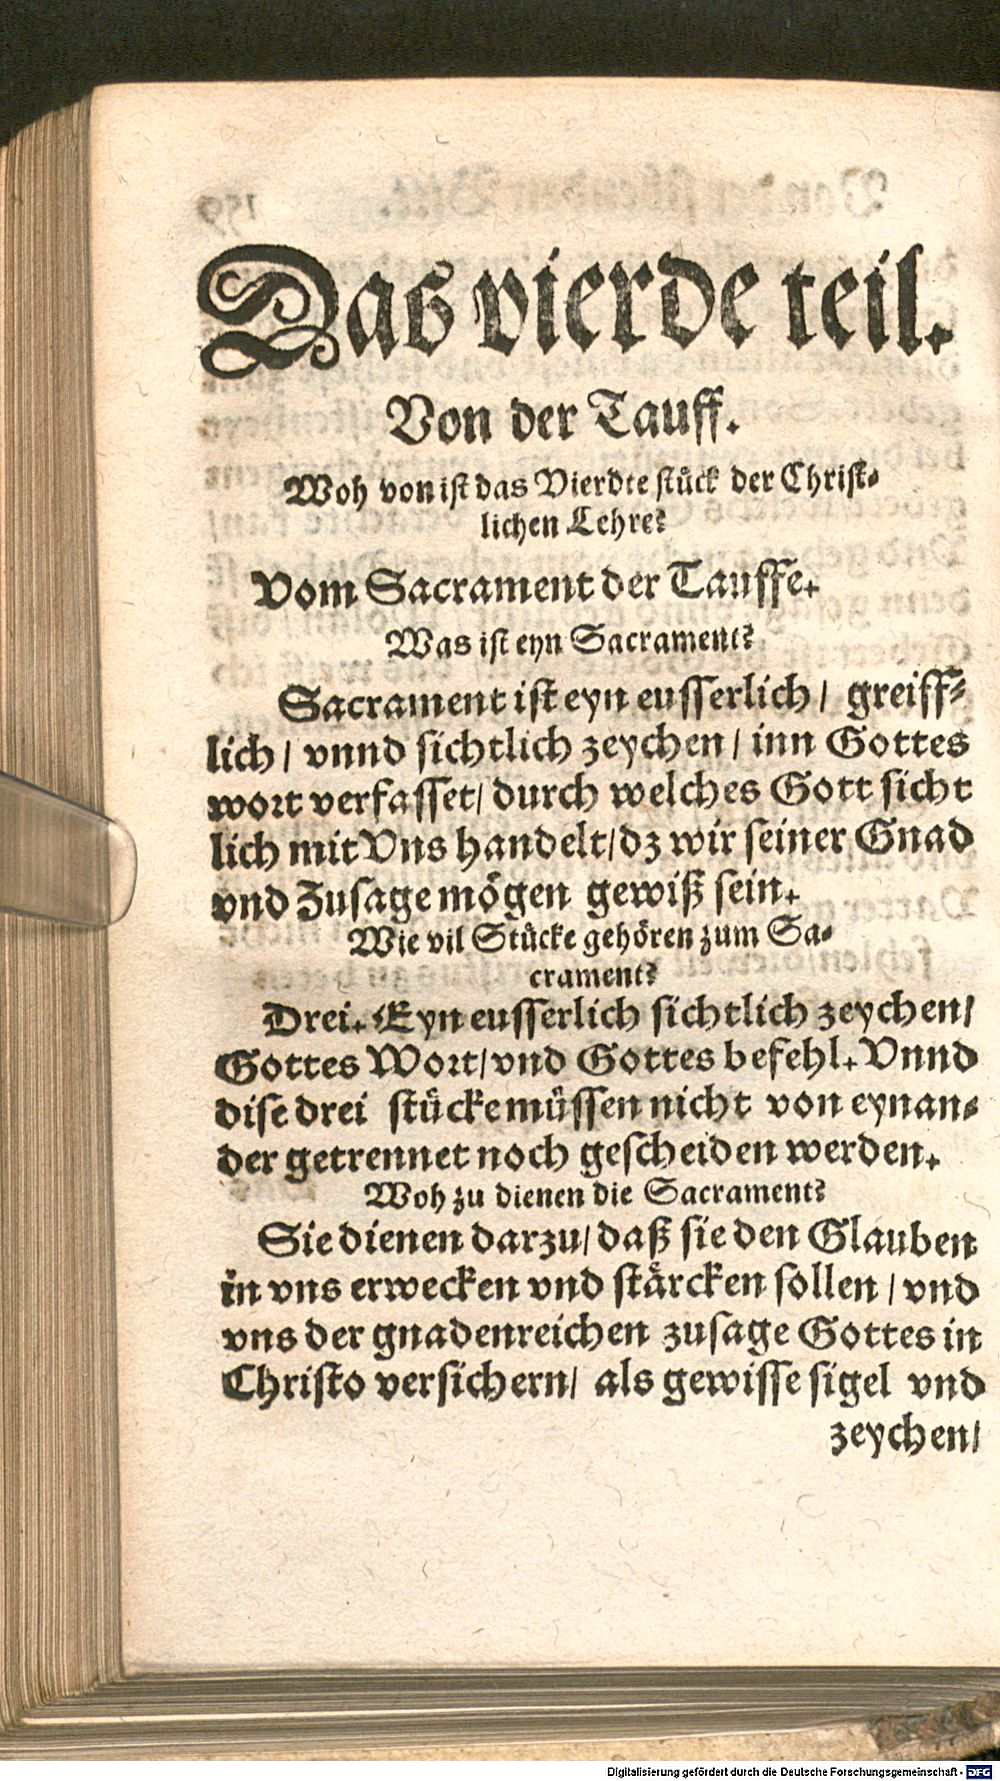 Das vierde teil.
Von der Tauff.
Woh von ist das Vierdte stück der Christ-
lichen Lehre?
Vom Sacrament der Tauffe.
Was ist eyn Sacrament?
Sacrament ist eyn eusserlich / greiff-
lich / vnnd sichtlich zeychen / inn Gottes
wort verfasset / durch welches Gott sicht
lich mit Vns handelt / dz wir seiner Gnad
vnd Zusage mögen gewiß sein.
Wie vil Stücke gehören zum Sa-
crament?
Drei. Eyn eusserlich sichtlich zeychen /
Gottes Wort / vnd Gottes befehl. Vnnd
dise drei stücke müssen nicht von eynan-
der getrennet noch gescheiden werden.
Woh zu dienen die Sacrament?
Sie dienen darzu / daß sie den Glauben
in vns erwecken vnd stärcken sollen / vnd
vns der gnadenreichen zusage Gottes in
Christo versichern / als gewisse sigel vnd
zeychen /
Digitalisierung gefördert durch die Deutsche Forschungsgemeinschaft - DFG